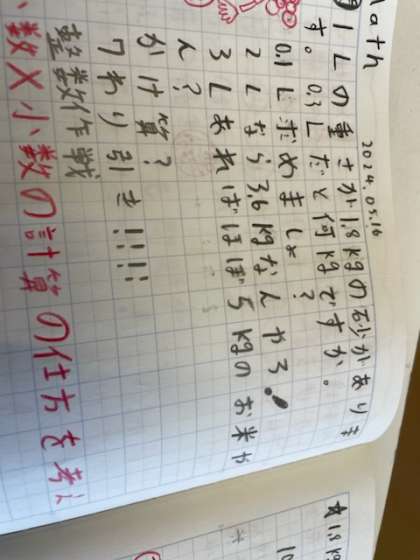 Math 2024.05.16
1Lの重さが1.8kgの砂があります。
0.3Lだと何kgですか。
0.1L求めましょ?
2Lなら3.6kgなんやろ!
3Lあればほぼ5kgのお米や
ん?
かけ算?
7わり引き!!!!
整数作戦
小数×小数の計算の仕方を考え
☆1.8kg
10